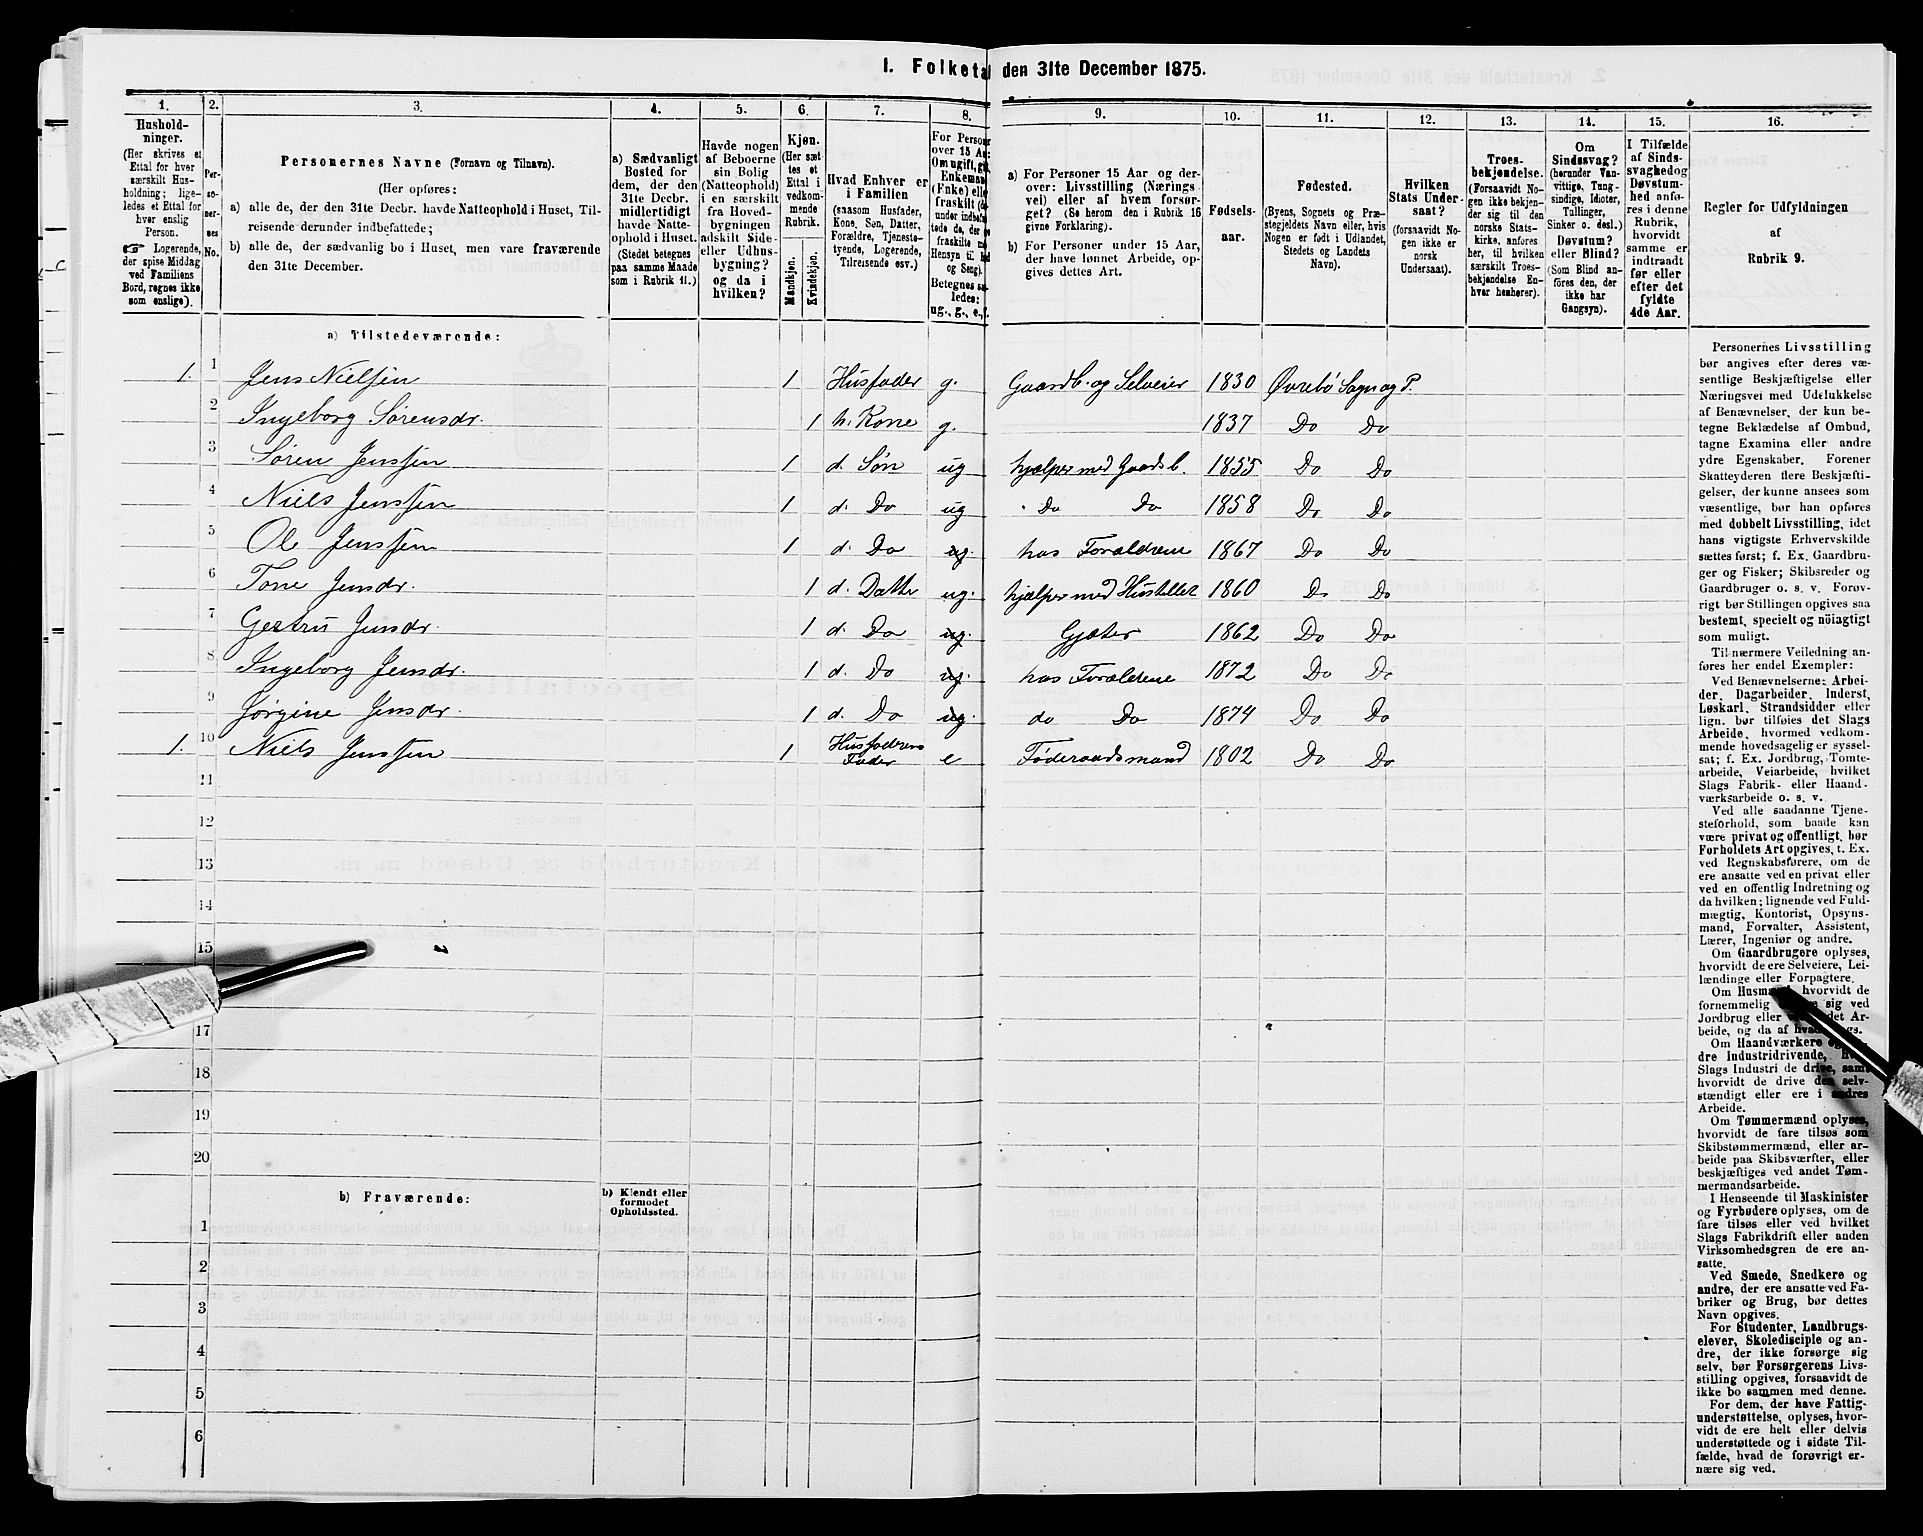 I. Folketal den 31te December 1875.
1. 2. 3. 4. 5. 6. 7. 8. 9. 10. 11. 12. 13. 14. 15. 16.
Hushold-
ninger.
(Her skrives et
Ettal for hver
særskilt Hus-
holdning; lige-
ledes et Ettal for
hver enslig
Person.
☞ Logerende,
der spise Middag
ved Familiens
Bord, regnes ikke
som enslige).
Per-
so-
ner-
nes
No.
Personernes Navne (Fornavn og Tilnavn).
(Her opføres:
a) alle de, der den 31te Decbr. havde Natteophold i Huset, Til-
reisende derunder indbefattede;
b) alle de, der sædvanlig bo i Huset, men vare fraværende
den 31te December.
a) Sædvanligt
Bosted for
dem, der den
31te Decbr.
midlertidigt
havde Natte-
ophold i Huset.
(Stedet betegnes
paa samme Maade
som i Rubrik 11.)
Havde nogen
af Beboerne
sin Bolig
(Natteophold)
i en særskilt
fra Hoved-
bygningen
adskilt Side-
eller Udhus-
bygning?
og da i
hvilken?
Kjøn.
(Her sæt-
tes et
Ettal i
vedkom-
mende
Rubrik.
Mandkjøn.
Kvindekjøn.
Hvad Enhver er
i Familien
(saasom Husfader,
Kone, Søn, Datter,
Forældre, Tjeneste-
tyende, Logerende,
Tilreisende osv.)
For Person
over 15 Aa
Om ugift, gi
Enkeman
(Fnke) elle
fraskilt (d
under indbef
tede de, der
fraskilte m
Hensyn til B
og Seng).
Betegnes sa
ledes:
ug., g., e., f.
a) For Personer 15 Aar og der-
over: Livsstilling (Nærings-
vei) eller af hvem forsør-
get? (Se herom den i Rubrik 16
givne Forklaring).
b) For Personer under 15 Aar,
der have lønnet Arbeide, op-
gives dettes Art.
Fødsels-
aar.
Fødested.
(Byens, Sognets og Præ-
stegjeldets Navn eller, hvis
Nogen er født i Udlandet,
Stedets og Landets
Navn).
Hvilken
Stats Under-
saat?
(forsaavidt No-
gen ikke er
norsk
Undersaat).
Troes-
bekjendelse.
(Forsaavidt No-
gen ikke bekjen-
der sig til den
norske Stats-
kirke, anføres
her, til hvilken
særskilt Troes-
bekjendelse En-
hver henhører).
Om
Sindssvag?
(herunder Van-
vittige, Tung-
sindige, Idioter,
Tullinger,
Sinker o. desl.)
Døvstum?
eller Blind?
(Som Blind an-
føres den, der
ikke har
Gangsyn).
I Tilfælde
af Sinds-
svaghed og
Døvstum-
hed anfø-
res i denne
Rubrik,
hvorvidt
samme er
indtraadt
før eller
efter det
fyldte
4de Aar.
Regler for Udfyldningen
af
Rubrik 9.
a) Tilstedeværende:
1. 1 Jens Nielsen 1 Husfader g. Gaardb. og Selveier 1830 Øvrebø Sogn og P.
2 Ingeborg Sørensdr. 1 h. Kone g. 1837 Do Do
3 Søren Jenssen 1 d. Søn ug hjælper med Gaardsb. 1855 Do Do
4 Niels Jenssen 1 d. Do ug Do Do 1858 Do Do
5 Ole Jenssen 1 d. Do ug. hos Forældrene 1867 Do Do
6 Tone Jensdr. 1 d. Datter ug. hjælper med Husstellet 1860 Do Do
7 Gertru Jensdr. 1 d. Do ug. Gjæter 1862 Do Do
8 Ingeborg Jensdr. 1 d. Do ug. hos Forældrene 1872 Do Do
9 Jørgine Jensdr. 1 d. Do ug. do Do 1874 Do Do
1. 10 Niels Jenssen 1 Husfaderens Fader e Føderaadsmand 1802 Do Do
11
12
13
14
15
17
18
19
20
b) Fraværende:
b) Kjendt eller
formodet
Opholdssted.
1
2
3
4
5
6
Personernes Livsstilling
bør angives efter deres væ-
sentlige Beskjæftigelse eller
Næringsvei med Udelukkelse
af Benævnelser, der kun be-
tegne Beklædelse af Ombud,
tagne Examina eller andre
ydre Egenskaber. Forener
Skatteyderen flere Beskjæfti-
gelser, der kunne ansees som
væsentlige, bør han opføres
med dobbelt Livsstilling, idet
hans vigtigste Erhvervskilde
sættes først; f. Ex. Gaardbru-
ger og Fisker; Skibsreder og
Gaardbruger o. s. v. Forøv-
rigt bør Stillingen opgives saa
bestemt, specielt og nöiagtigt
som muligt.
Til nærmere Veiledning an-
føres her endel Exempler:
Ved Benævnelserne: Arbei-
der, Dagarbeider, Inderst,
Løskarl, Strandsidder eller
lign. bør tilføies det Slags
Arbeide, hvormed vedkom-
mende hovedsagelig er syssel-
sat; f. Ex. Jordbrug, Tomte-
arbeide, Veiarbeide, hvilket
Slags Fabrik- eller Haand-
værksarbeide o. s. v.
Ved alle saadanne Tjene-
steforhold, som baade kan
være privat og offentligt, bør
Forholdets Art opgives, t. Ex.
ved Regnskabsførere, om de
ere ansatte ved en privat eller
ved en offentlig Indretning og
da hvilken; lignende ved Fuld-
mægtig, Kontorist, Opsyns-
mand, Forvalter, Assistent,
Lærer, Ingeniør og andre.
Om Gaardbrugere oplyses,
hvorvidt de ere Selveiere, Lei-
lændinge eller Forpagtere.
Om Husmænd, hvorvidt de
fornemmelig sig ved
Jordbrug eller det Ar-
beide, og da af hvad gs.
Om Haandværkere og
dre Industridrivende,
Slags Industri de drive, samt
hvorvidt de drive den selv-
stændigt eller ere i andres
Arbeide.
Om Tømmermænd oplyses,
hvorvidt de fare tilsøs som
Skibstømmermænd, eller ar-
beide paa Skibsværfter, eller
beskjæftiges ved andet Tøm-
mermandsarbeide.
I Henseende til Maskinister
og Fyrbødere oplyses, om de
fare tilsøs eller ved hvilket
Slags Fabrikdrift eller anden
Virksomhedsgren de ere an-
satte.
Ved Smede, Snedkere og
andre, der ere ansatte ved Fa-
briker og Brug, bør dettes
Navn opgives.
For Studenter, Landbrugs-
elever, Skoledisciple og an-
dre, der ikke forsørge sig
selv, bør Forsørgerens Livs-
stilling opgives, forsaavidt de
ikke bo sammen med denne.
For dem, der have Fattig-
understøttelse, oplyses, hvor-
vidt de ere helt eller delvis
understøttede og i sidste Til-
fælde, hvad de forøvrigt er-
nære sig ved.